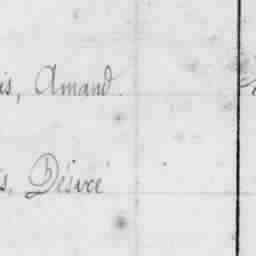 is, Amand.
s, Désiré